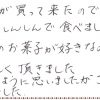 が買って来たので
しんしんで食べまし
のお菓子が好きな
しく頂きました
ように思いましたがこ
した